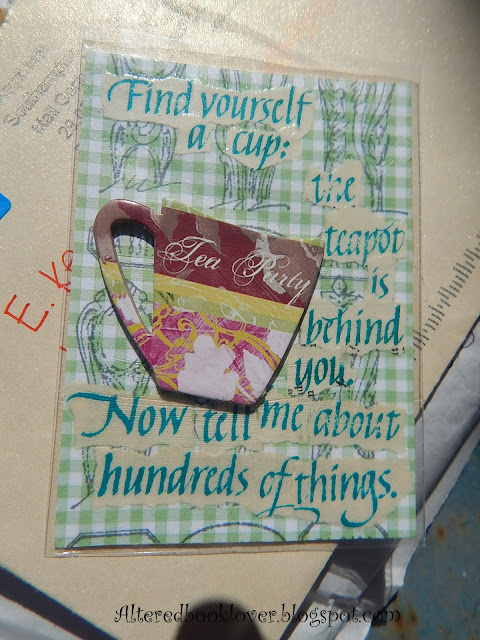 Find yourself
a cup:
the
teapot
is
behind
you.
Now tell me about
hundreds of things.
Tea Party
E. Ke
Alteredbooklover.blogspot.com